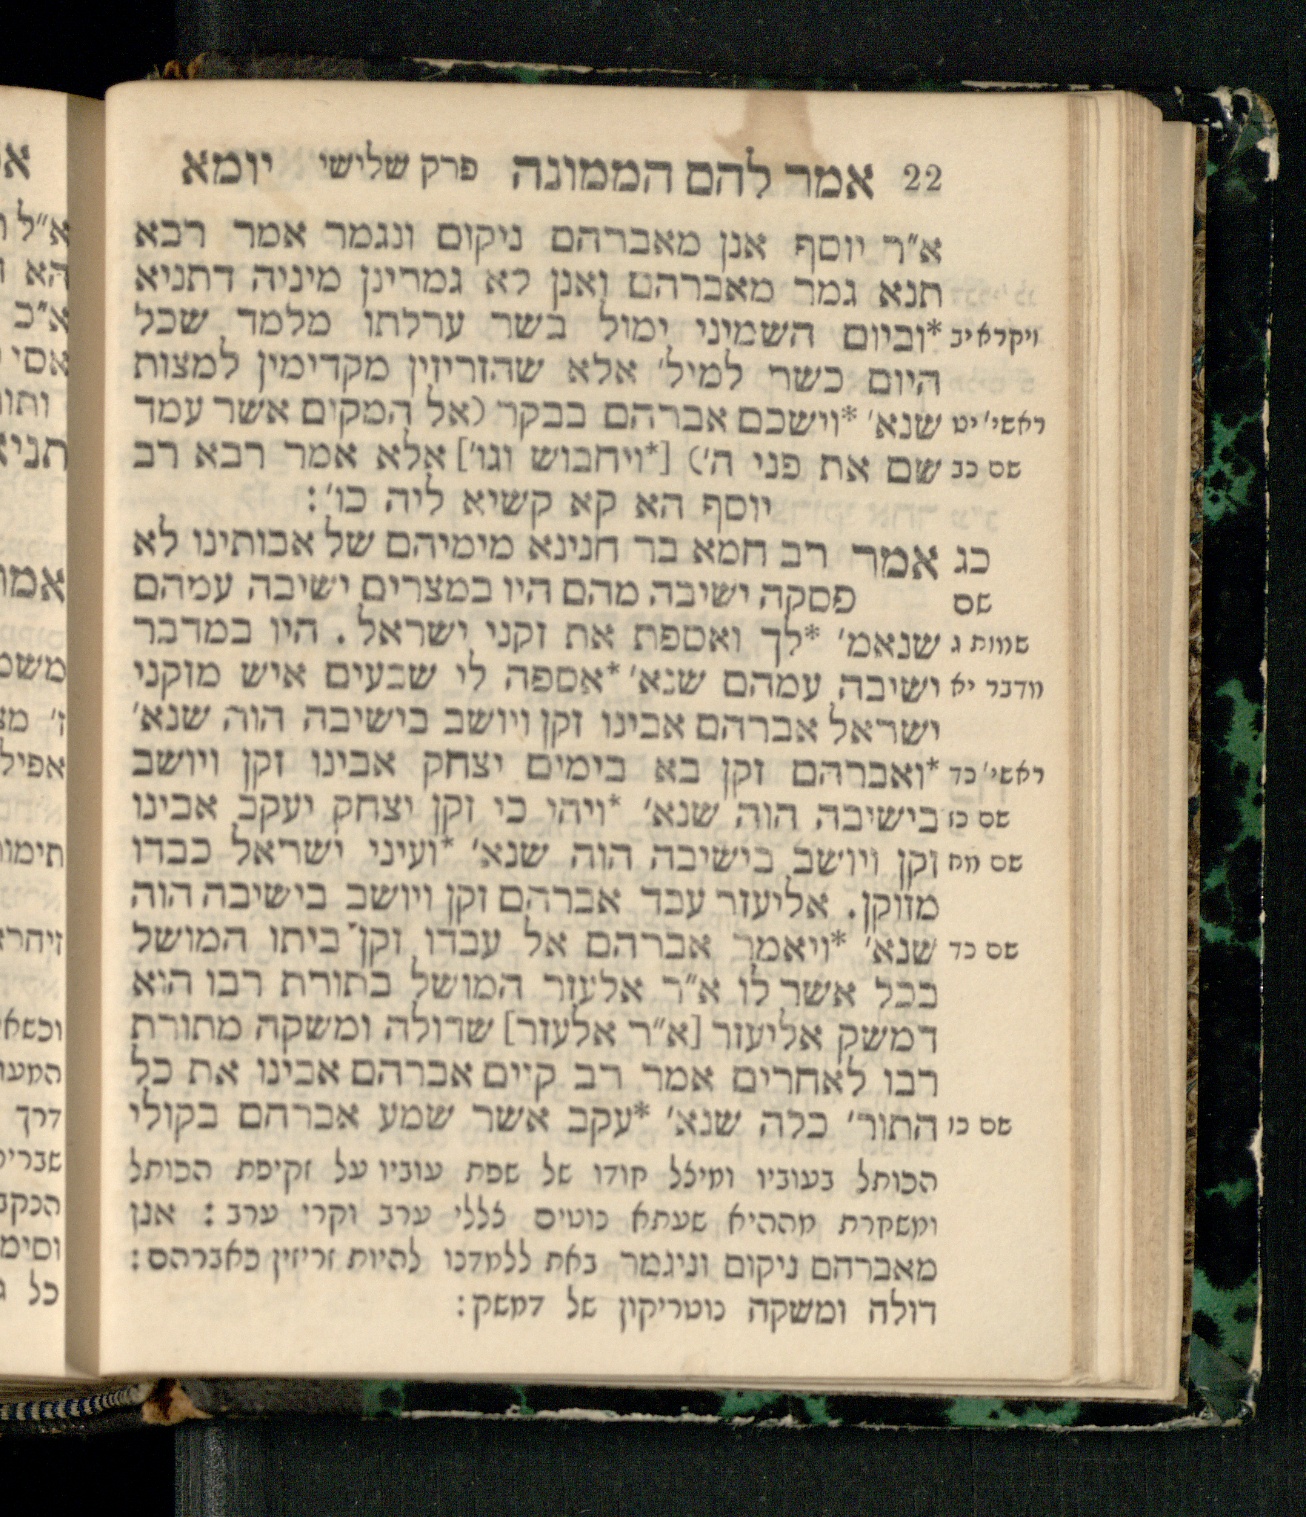 22 אמר להם הממונה פרק שלישי יומא
א״ר יוסף אנן מאברהם ניקום ונגמר אמר רבא
תנא גמר מאברהם ואנן לא גמרינן מיניה דתניא
ויקרא יב *וביום השמיני ימול בשר ערלתו מלמד שכל
היום כשר למיל׳ אלא שהזריזין מקדימין למצות
ראשי׳ יט שנא׳ *וישכם אברהם בבקר (אל המקום אשר עמד
שם כב שם את פני ה׳) [*ויחבוש וגו׳] אלא אמר רבא רב
יוסף הא קא קשיא ליה כו׳:
כג אמר רב חמא בר חנינא מימיהם של אבותינו לא
שם פסקה ישיבה מהם היו במצרים ישיבה עמהם
שמות ג שנאמ׳ *לך ואספת את זקני ישראל. היו במדבר
מדבר יא ישיבה עמהם שנא׳ *אספה לי שבעים איש מזקני
ישראל אברהם אבינו זקן ויושב בישיבה הוה שנא׳
ראשי׳ כד *ואברהם זקן בא בימים יצחק אבינו זקן ויושב
שם כז בישיבה הוה שנא׳ *ויהי כי זקן יצחק יעקב אבינו
שם מח זקן ויושב בישיבה הוה שנא׳ *ועיני ישראל כבדו
מזוקן. אליעזר עבד אברהם זקן ויושב בישיבה הוה
שם כד שנא׳ *ויאמר אברהם אל עבדו זקן ביתו המושל
בכל אשר לו א״ר אלעזר המושל בתורת רבו הוא
דמשק אליעזר [א״ר אלעזר] שדולה ומשקה מתורת
רבו לאחרים אמר רב קיים אברהם אבינו את כל
שם כו התור׳ כלה שנא׳ *עקב אשר שמע אברהם בקולי
הכותל בעוביו ומיכל חודו של שפת עוביו על זקיפת הכותל
ומשקרת מההיא שעתא נוטים צללי ערב וקרי ערב: אנן
מאברהם ניקום וניגמר באת ללמדנו להיות זריזין כאברהם:
דולה ומשקה נוטריקון של דמשק: